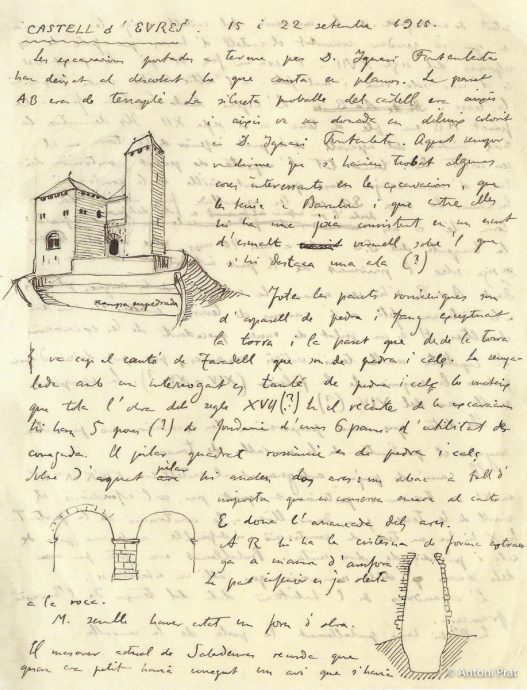 CASTELL d'EURES. 15 i 22 setembre 1915.
Les excavacions portades a terme per D. Ignasi Fontcuberta
han deixat al descobert lo que consta en planos. La paret
AB era de terraplè La silueta probable del castell era aixís
i aixís va ser donada en dibuix colorit
a D. Ignasi Fontcuberta. Aquest senyor
que s'havien trobat algunes
coses interessants en les excavacions, que
les tenia a Barcelona i que entre elles
hi ha una joia consistent en un escut
d'esmalt vermell sobre'l que
s'hi destaca una ala (?)
Rampa empedrada
Totes les parets romàniques son
d'aparell de pedra i fang exceptuant
la torra i la paret que desde la torra
va cap el cantó de Taradell que son de pedra i calç. La senya-
lada amb un interrogant es també de pedra i calç lo mateix
que tota l'obra del segle XVII (?) En el recinte de les excavacions
hi han 5 pous (?) de fondaria d'uns 6 pams d'utilitat des-
coneguda. El pilar quadrat romànic es de pedra i calç
Sobre d'aquet pilar hi anaven dos arcs: un abac a tall d'
imposta que es conserva encare al cantó
E dona l'arrancada dels arcs.
A R hi ha la cisterna de forma
ja a manera d'amfora
La part inferior es ja oberta
a la roca.
M. sembla haver estat un forn d'obra.
El masover actual de Sabadeures recorda que
quan era petit havia conegut un avi que s'havia
© Antoni Prat